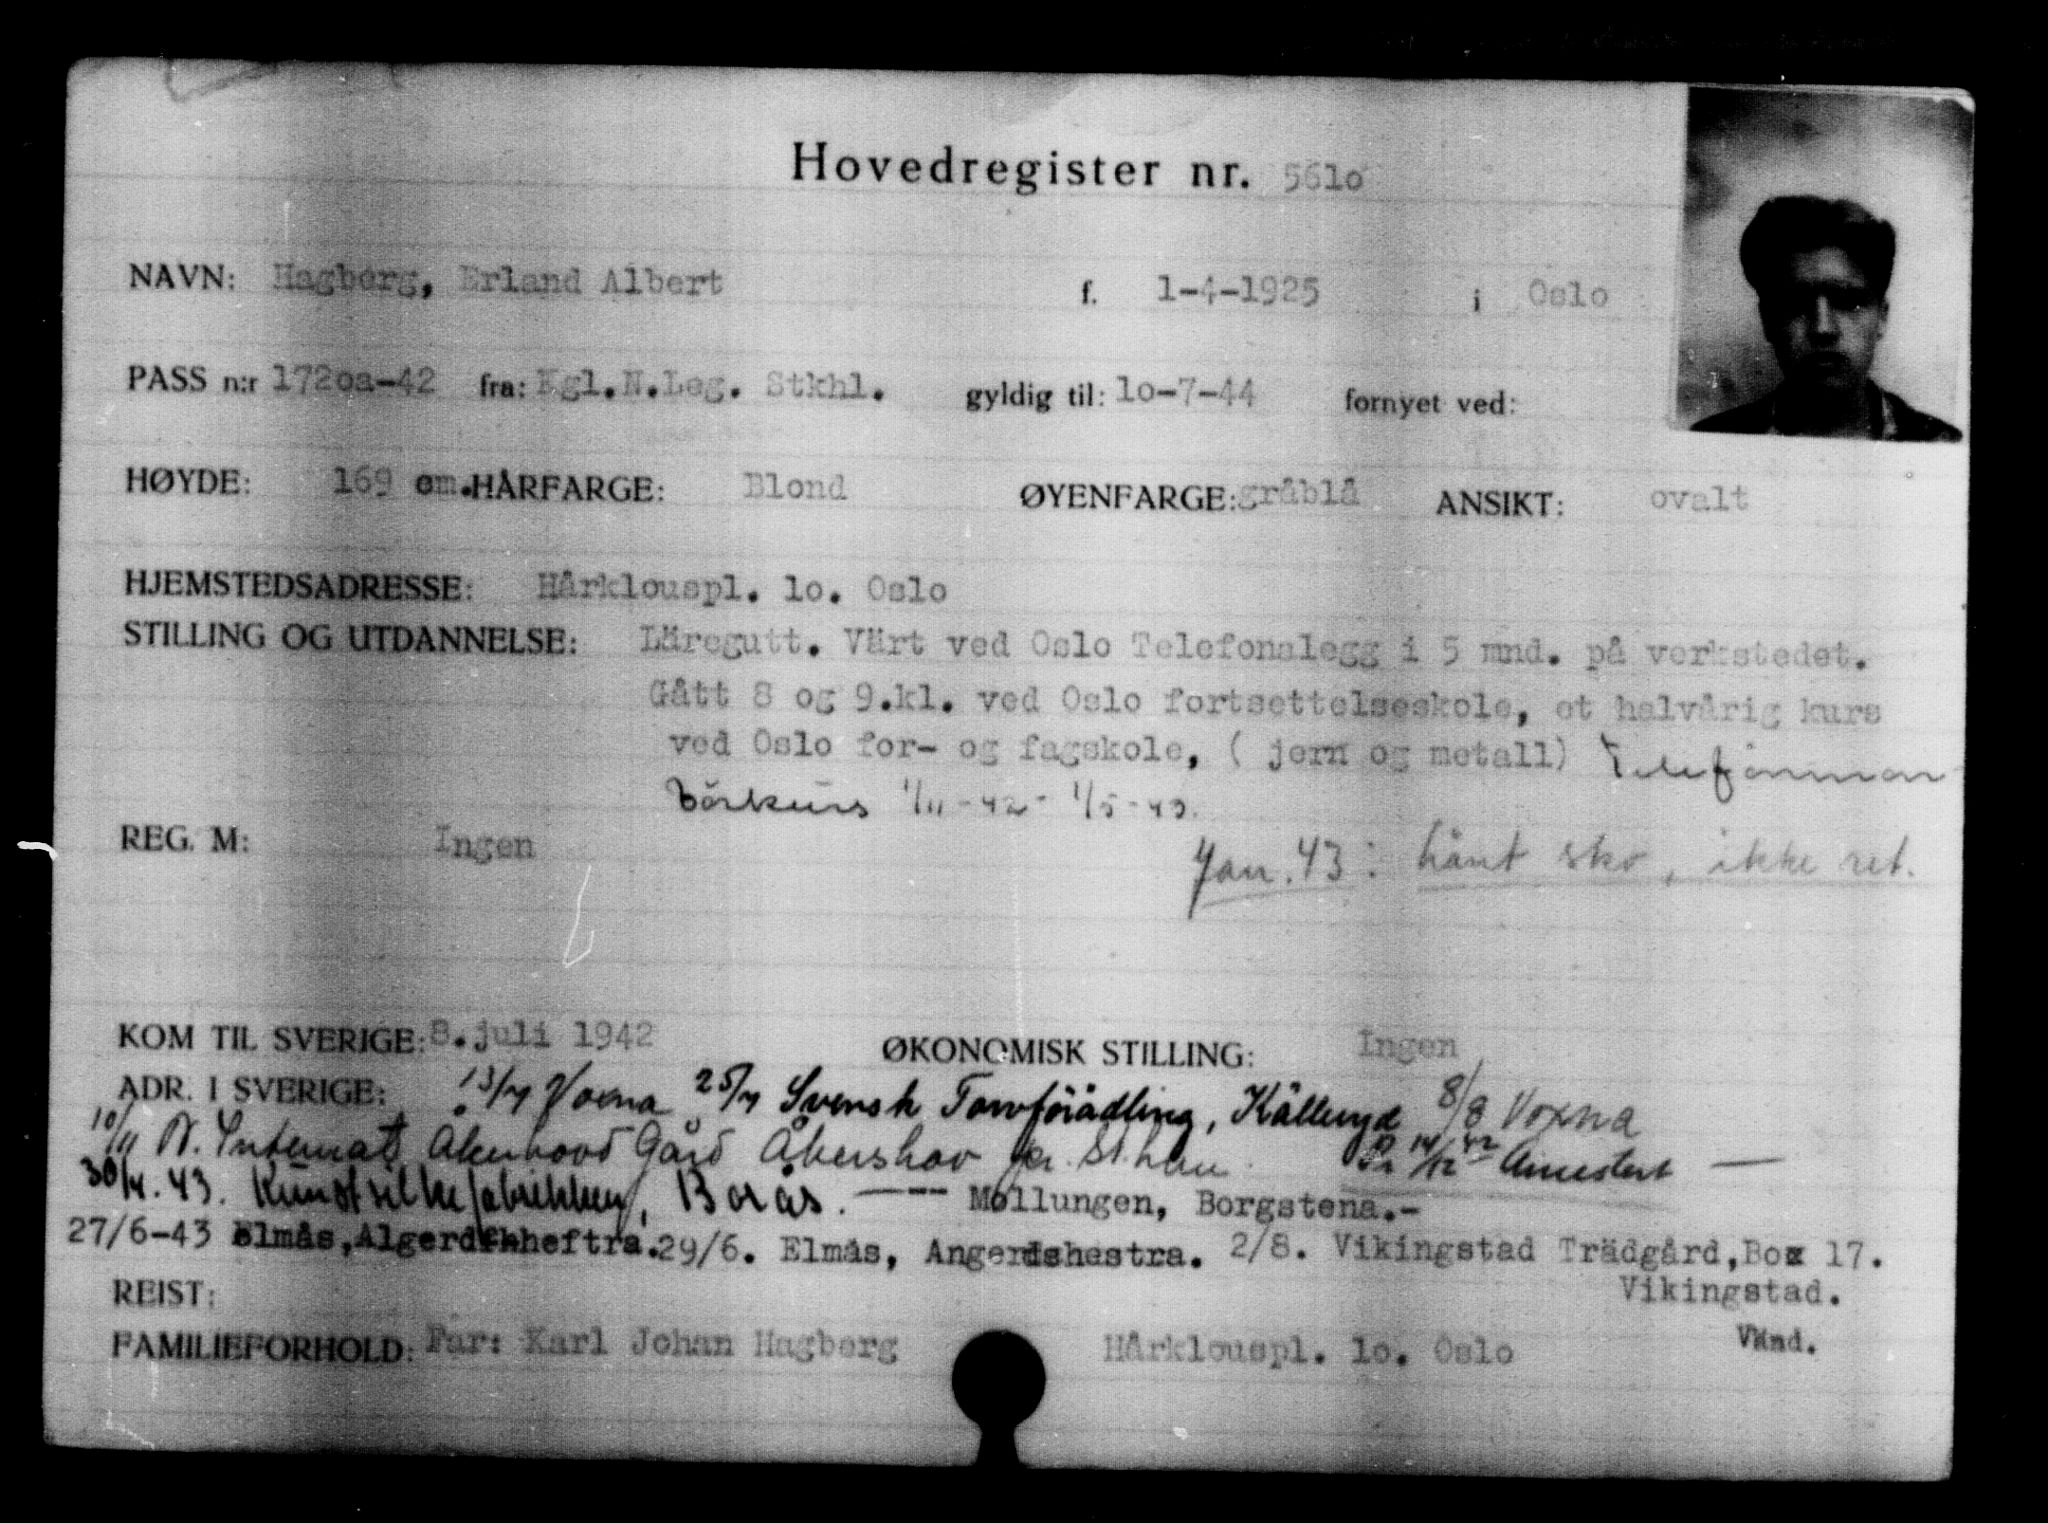 Hovedregister nr. 5610
NAVN: Hagberg, Erland Albert f. 1-4-1925 i Oslo
PASS n:r 1720a-42 fra: Kgl.N.Leg. Stkhl. gyldig til: 10-7-44 fornyet ved:
HØYDE: 169 cm. HÅRFARGE: Blond ØYENFARGE: gråblå ANSIKT: ovalt
HJEMSTEDSADRESSE: Hårklouspl. 10. Oslo
STILLING OG UTDANNELSE: Läregutt. Värt ved Oslo Telefonalegg i 5 mnd. på verkstedet.
Gått 8 og 9.kl. ved Oslo fortsettelseskole, et halvårig kurs
ved Oslo for- og fagskole, ( jern og metall)
1/11-42 - 1/5-43.
REG. M: Ingen
Jan. 43: lånt sko, ikke ret.
KOM TIL SVERIGE: 8.juli 1942 ØKONOMISK STILLING: Ingen
ADR. I SVERIGE: 13/7 Voxna 25/7 Svensk Torvförädling, Källeryd 8/8 Voxna
10/11 N. Internat Åkershov Gård Åkershov 14/12 42
30/4. 43. Kunstsilkefabrikken, Borås. — Mollungen, Borgstena.-
27/6-43 Elmås, 29/6. Elmås, Angerdshestra. 2/8. Vikingstad Trädgård, Box 17.
Vikingstad.
REIST:
Vänd.
FAMILIEFORHOLD: Far: Karl Johan Hagberg Hårklouspl. 10. Oslo